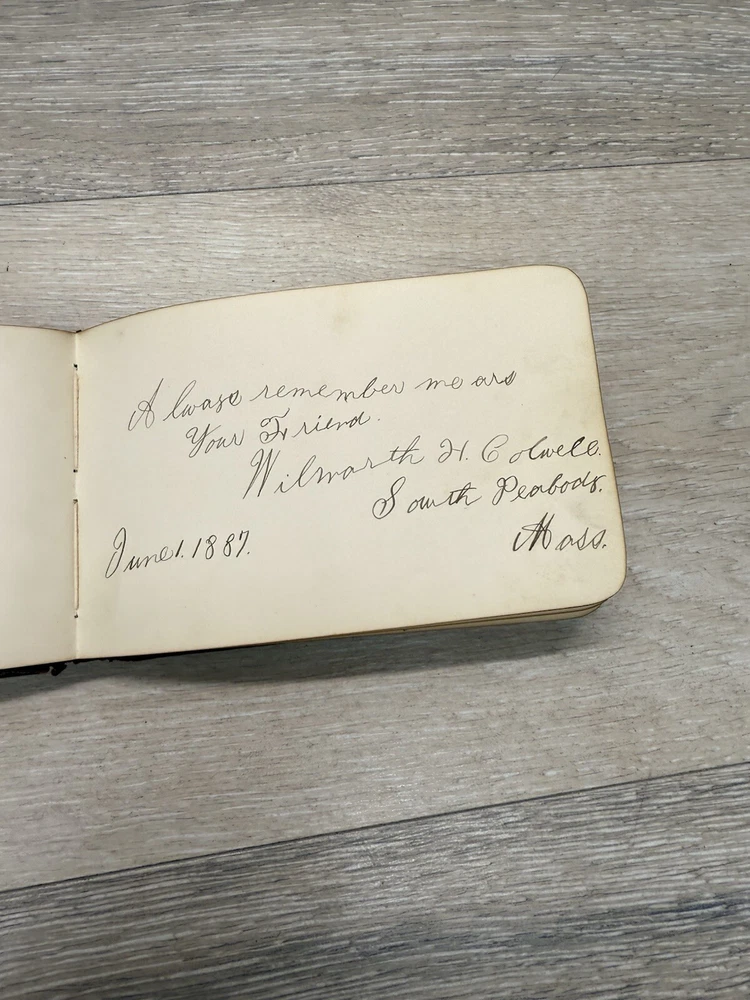 Always remember me as
Your Friend.
Wilmarth H. Colwell.
South Peabody.
Mass.
June 1. 1887.